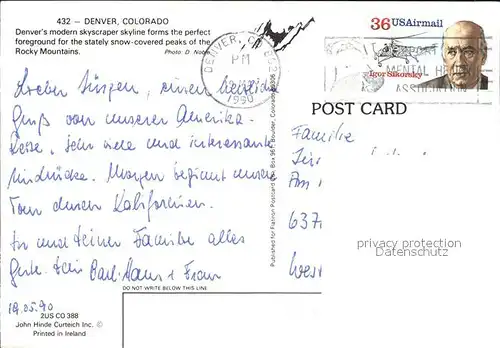 432 – DENVER, COLORADO
Denver's modern skyscraper skyline forms the perfect
foreground for the stately snow-covered peaks of the
Rocky Mountains. Photo: D. Noble
DENVER, CO 802
PM
1990
36 USAirmail
Igor Sikorsky
SUPPORT
MENTAL HE
ASSOCIATION
POST CARD
Lieber Jürgen, einen herzliche
Gruß von unserer Amerika-
Reise, sehr viele und interessante
Eindrücke. Morgen beginnt unsere
Tour durch Kalifornien.
Dir und deiner Familie alles
Gute. Dein Karl-Hans + Frau
19.05.90
Familie
Am
637
West
privacy protection
Datenschutz
Published for Flatiron Postcard Box 967, Boulder, Colorado 80306
DO NOT WRITE BELOW THIS LINE
2US CO 388
John Hinde Curteich Inc. ©
Printed in Ireland